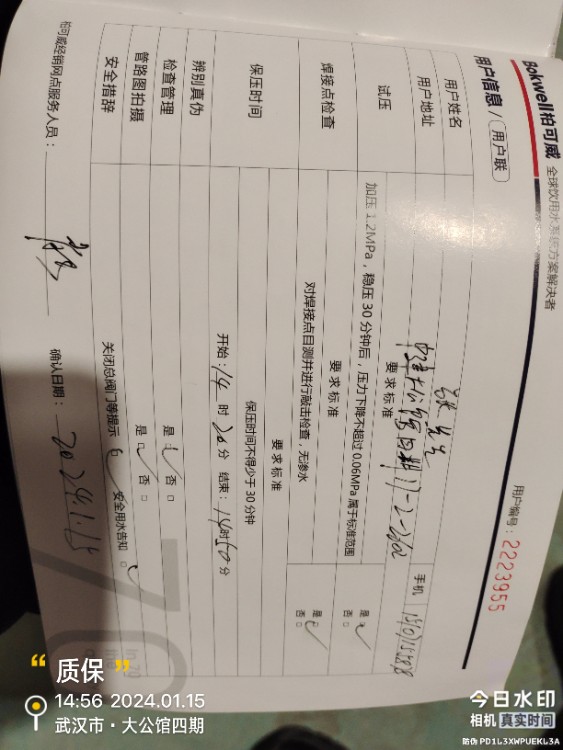 Bokwell柏可威 全球饮用水系统方案解决者
用户信息 / 用户联
用户编号：2223955
用户姓名 张先生
用户地址
手机
试压
要求标准
加压 1.2MPa，稳压 30 分钟后，压力下降不超过 0.06MPa 属于标准范围
是 否
焊接点检查
要求标准
对焊接点目测并进行敲击检查，无渗水
是 否
保压时间
要求标准
保压时间不得少于 30 分钟
开始：14 时 20 分 结束：14 时 50 分
辨别真伪
检查管理
是 否
管路图拍摄
是 否
安全措辞
关闭总阀门等提示 安全用水告知
柏可威经销网点服务人员：
确认日期：2024.1.15
“ 质保 ”
14:56 2024.01.15
武汉市·大公馆四期
今日水印
相机 真实时间
防伪 PD1L3XWPUEKL3A